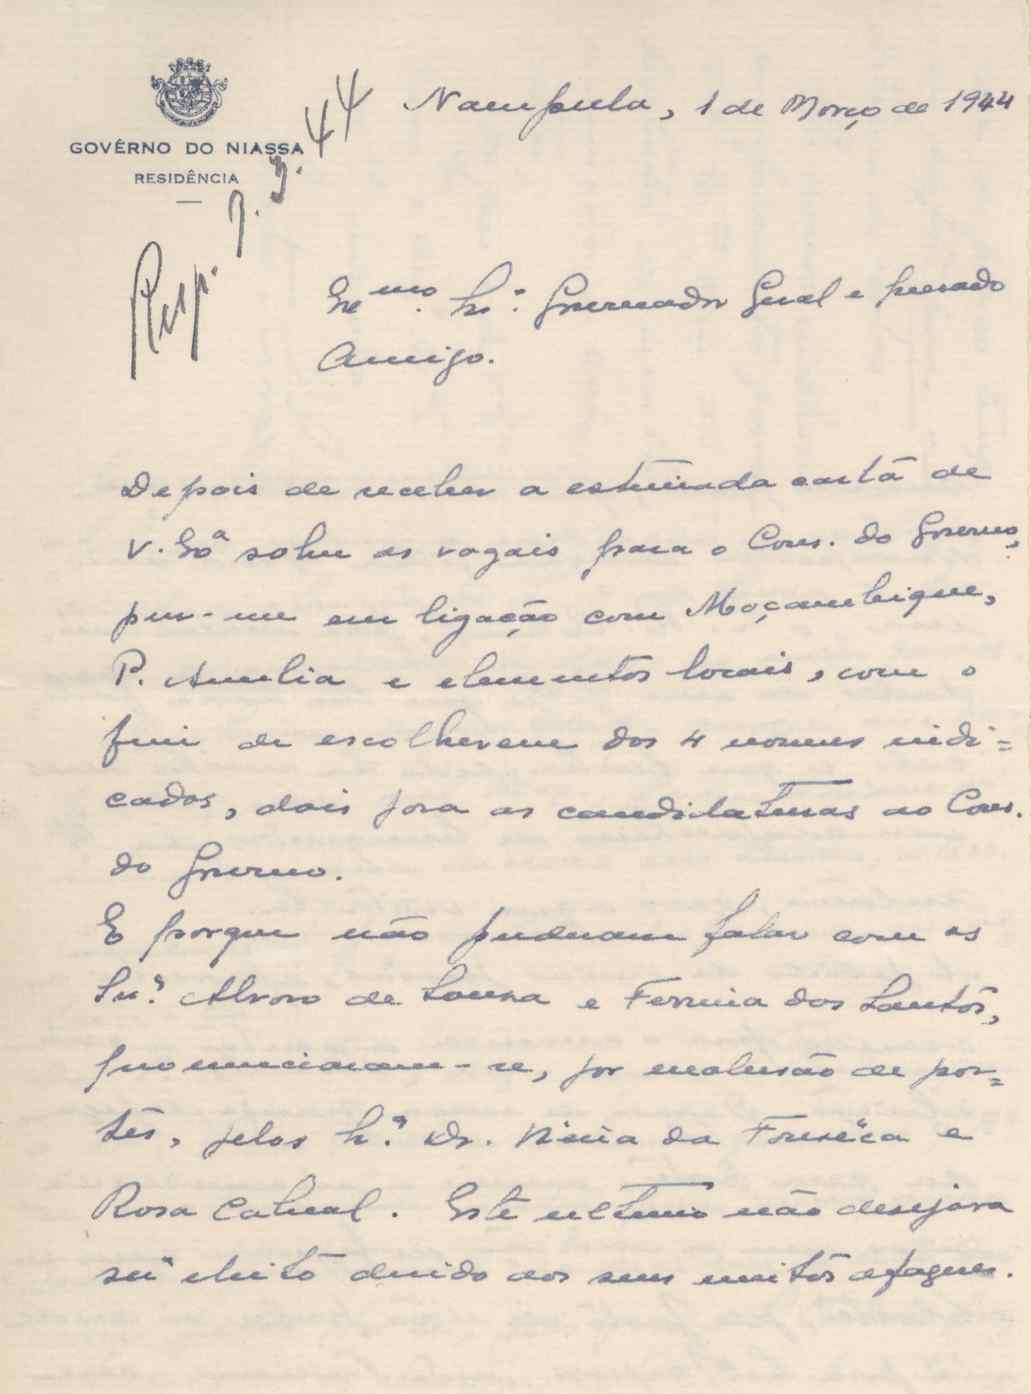 GOVÊRNO DO NIASSA
RESIDÊNCIA
Resp. 7.3.44
Nampula, 1 de Março de 1944
Exmo. Sr. Governador Geral e prezado
Amigo.
Depois de receber a estimada carta de
V. Exª sobre os vogais para o Cons. do Governo,
pus-me em ligação com Moçambique,
P. Amelia e elementos locais, com o
fim de escolherem dos 4 nomes indi=
cados, dois para as candidaturas ao Cons.
do Governo.
E porque não puderam falar com os
Srs. Alvaro de Souza e Ferreira dos Santos,
pronunciaram-se, por exclusão de par=
tes, pelos Srs. Dr. Vieira da Fonseca e
Rosa Cabral. Este ultimo não desejava
ser eleito devido aos seus muitos afazeres.